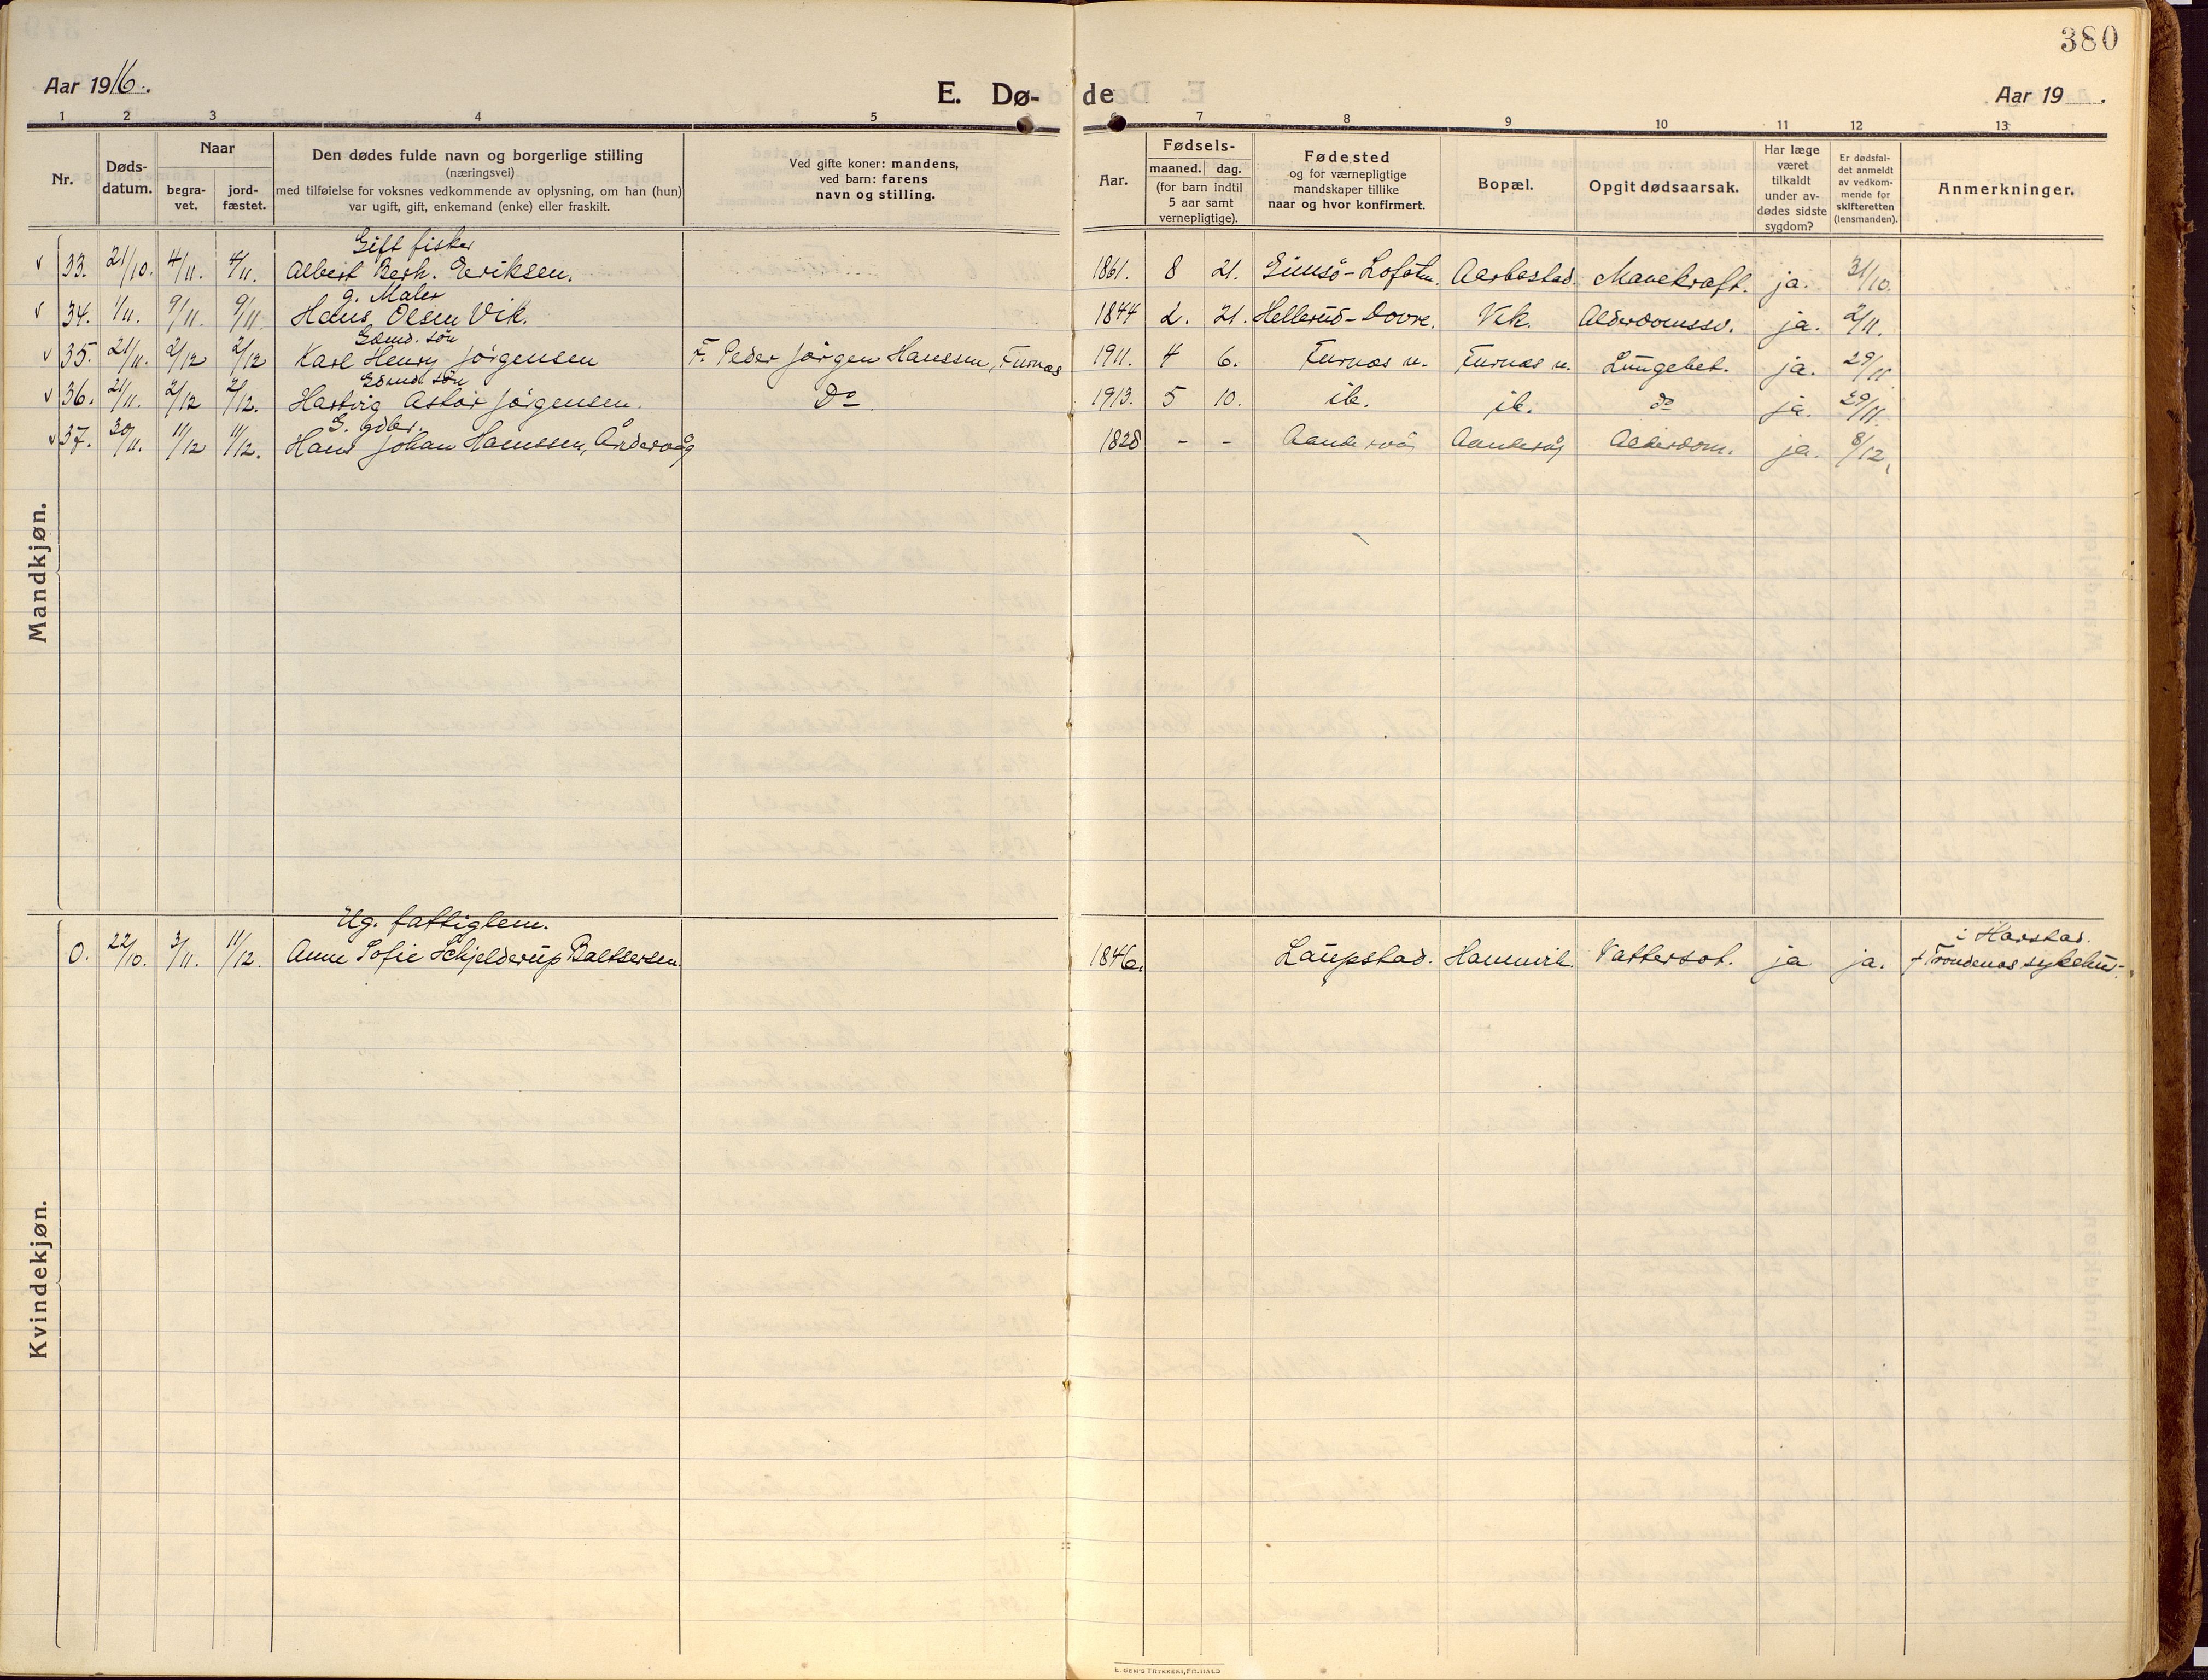 380
Aar 1916.
E. Dø-
de
Aar 19 .
1 2 3 4 5 6 7 8 9 10 11 12 13
Nr.
Døds-
datum.
Naar
begra-
vet.
jord-
fæstet.
Den dødes fulde navn og borgerlige stilling
(næringsvei)
med tilføielse for voksnes vedkommende av oplysning, om han (hun)
var ugift, gift, enkemand (enke) eller fraskilt.
Ved gifte koner: mandens,
ved barn: farens
navn og stilling.
Aar.
Fødsels-
maaned. dag.
(for barn indtil
5 aar samt
vernepligtige).
Fødested
og for værnepligtige
mandskaper tillike
naar og hvor konfirmert.
Bopæl.
Opgit dødsaarsak.
Har læge
været
tilkaldt
under av-
dødes sidste
sygdom?
Er dødsfal-
det anmeldt
av vedkom-
mende for
skifteretten
(lensmanden).
Anmerkninger.
Mandkjøn.
Gift fisker
33. 21/10. 4/11. 4/11. Albert Berh. Eriksen. 1861. 8 21. Gimsö-Lofoten. Aarbostad. Mavekraft. ja. 31/10.
g. Maler
34. 1/11. 9/11. 9/11 Hans Olsen Vik. 1844 2. 21. Hellerud-Dovre. Vik. Alderdomssv. ja. 2/11.
Gdmd. søn
35. 21/11. 2/12 2/12 Karl Henry Jørgensen F. Peder Jørgen Hanssen, Furnes 1911. 4 6. Furnes n. Furnes n. Lungebet. ja. 29/11.
Gdmd. søn
36. 21/11. 2/12 2/12. Hartvig Astor Jørgensen. Do 1913. 5 10. ib. ib. do ja. 29/11.
G. gdbr.
37. 30/11. 11/12 11/12. Hans Johan Hanssen, Åndervåg 1828 - - Aandervåg Aandervåg Alderdom. ja. 8/12.
Kvindekjøn.
Ug. fattiglem.
0. 22/10. 3/11. 11/12. Anne Sofie Schjelderup Baltsersen. 1846. Laupstad. Hamnvik. Vattersot. ja ja. i Harstad.
† Trondenes sykehus.
E. SEM'S TRYKKERI, FR.HALD